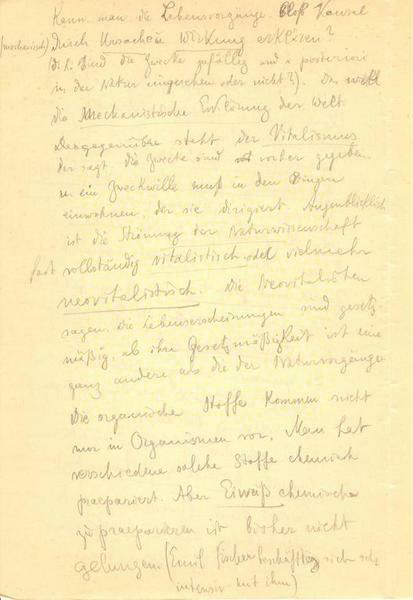 Kann man die Lebensvorgänge bloß Kausal
(mechanisch) durch Ursache u Wirkung erklären?
D. h. Sind die Zwecke zufällig und a posteriori
in der Natur eingesehen oder nicht?). Das will
die Mechanistische Erklärung der Welt.
Demgegenüber steht der Vitalismus
der sagt, die Zwecke sind vorher gegeben
u. ein Zweckwille muß in den Dingen
einwohnen, der sie dirigiert. Augenblicklich
ist die Strömung der Naturwissenschaft
fast vollständig vitalistisch oder vielmehr
neovitalistisch. Die Neovitalisten
sagen: Die Lebenserscheinungen sind gesetz-
mäßig, ihre Gesetzmäßigkeit ist eine
ganz andere als die der Naturvorgänge
Die organische Stoffe kommen nicht
nur in Organismen vor. Man hat
verschiedene solche Stoffe chemisch
praepariert. Aber Eiweiß chemische
zu praeparieren ist bisher nicht
gelungen (Emil Fischer beschäftigt sich sehr
intensiv mit ihm)